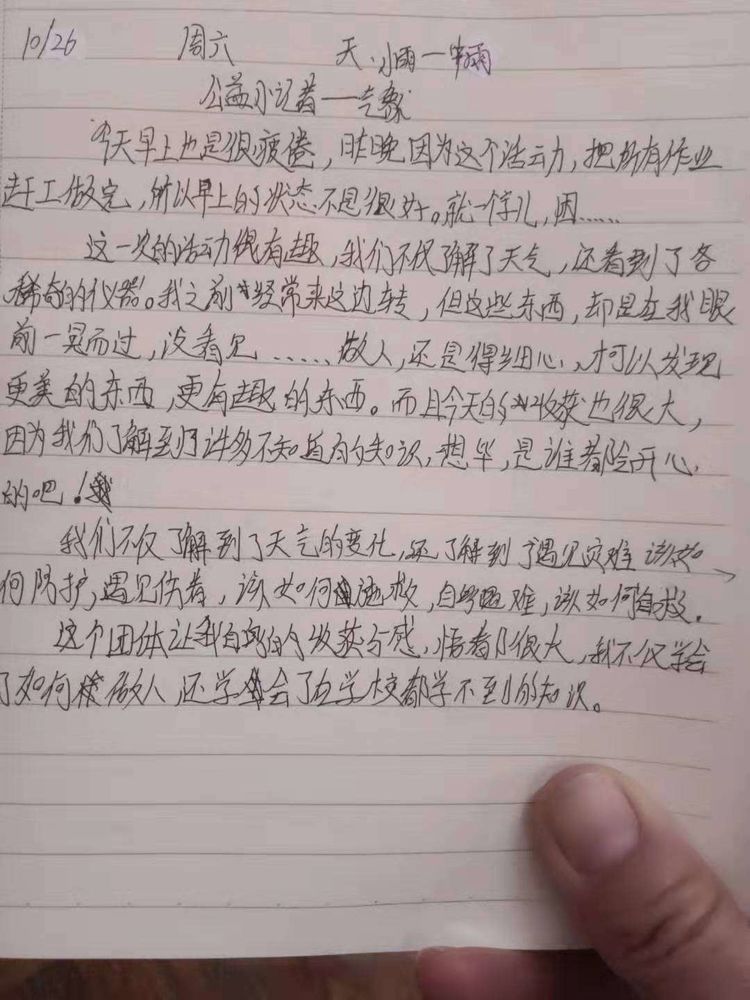 10/26 周六 天:小雨—中雨
公益小记者——气象
今天早上也是很疲倦,昨晚因为这个活动,把所有作业
赶工做完,所以早上的状态不是很好。就一个字儿,困……
这一次的活动很有趣,我们不仅了解了天气,还看到了各
稀奇的仪器。我之前经常来这边转,但这些东西,却是在我眼
前一晃而过,没看见……做人,还是得细心,才可以发现
更美的东西,更有趣的东西。而且今天的收获也很大,
因为我们了解到许多不知道的知识,想毕,是谁都会开心
的吧!
我们不仅了解到了天气的变化,还了解到了遇见灾难该如
何防护,遇见伤者,该如何施救,自己遇难,该如何自救。
这个团体让我自身的收获与感悟都很大,我不仅学会
了如何做人,还学会了在学校都学不到的知识。